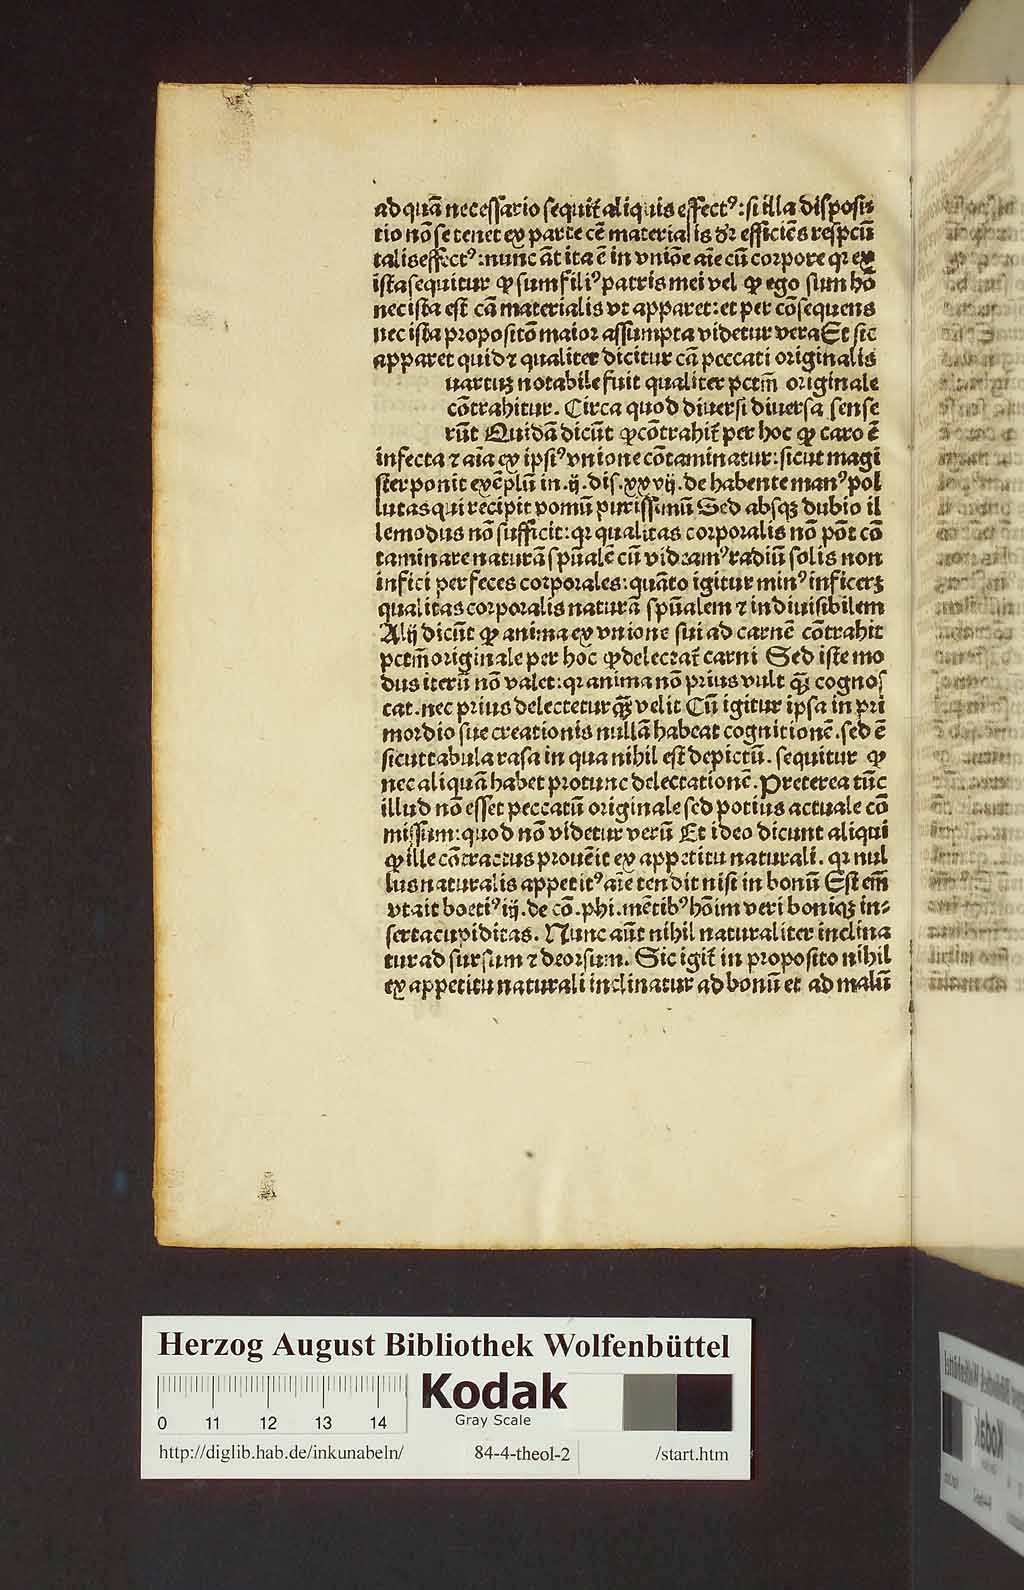 ad quā necessario sequit̄ aliquis effectꝰ: si illa disposis
tio nō se tenet ex parte cē materialis dr̄ efficiēs respcū
talis effectꝰ: nunc āt ita ē in vniōe aīe cū corpore qꝛ ex
ista sequitur ꝙ sum filiꝰ patris mei vel ꝙ ego sum hō
nec ista est cā materialis vt apparet: et per cōsequens
nec ista propositō maior assumpta videtur vera Et sic
apparet quid ⁊ qualiter dicitur cā peccati originalis
uartuꝫ notabile fuit qualiter pctm̄ originale
cōtrahitur. Circa quod diuersi diuersa sense
rūt Quidā dicūt ꝙ cōtrahit̄ per hoc ꝙ caro ē
infecta ⁊ aīa ex ipsiꝰ vnione cōtaminatur: sicut magi
ster ponit exēplū in .ij. dis. xxvij. de habente manꝰ pol
lutas qui recipit pomū purissimū Sed absqꝫ dubio il
le modus nō sufficit: qꝛ qualitas corporalis nō pōt cō
taminare naturā spūalē cū videamꝰ radiū solis non
infici per feces corporales: quāto igitur minꝰ inficerꝫ
qualitas corporalis naturā spūalem ⁊ indiuisibilem
Alij dicūt ꝙ anima ex vnione sui ad carnē cōtrahit
pctm̄ originale per hoc ꝙ delectat̄ carni Sed iste mo
dus iterū nō valet: qꝛ anima nō prius vult qꝫ̄ cognos
cat. nec prius delectetur qꝫ̄ velit Cū igitur ipsa in pri
mordio sue creationis nullā habeat cognitionē. sed ē
sicut tabula rasa in qua nihil est depictū. sequitur ꝙ
nec aliquā habet protunc delectationē. Preterea tūc
illud nō esset peccatū originale sed potius actuale cō
missum: quod nō videtur verū Et ideo dicunt aliqui
ꝙ ille cōtractus prouēit ex appetitu naturali. qꝛ nul
lus naturalis appetitꝰ aīe tendit nisi in bonū Est em̄
vt ait boetiꝰ iij. de cō. phi. mētibꝰ hōim veri boniqꝫ in⸗
serta cupiditas. Nunc aūt nihil naturaliter inclina
tur ad sursum ⁊ deorsum. Sic igit̄ in proposito nihil
ex appetitu naturali inclinatur ad bonū et ad malū
Herzog August Bibliothek Wolfenbüttel
Kodak
Gray Scale
0 11 12 13 14
http://diglib.hab.de/inkunabeln/ 84-4-theol-2 /start.htm